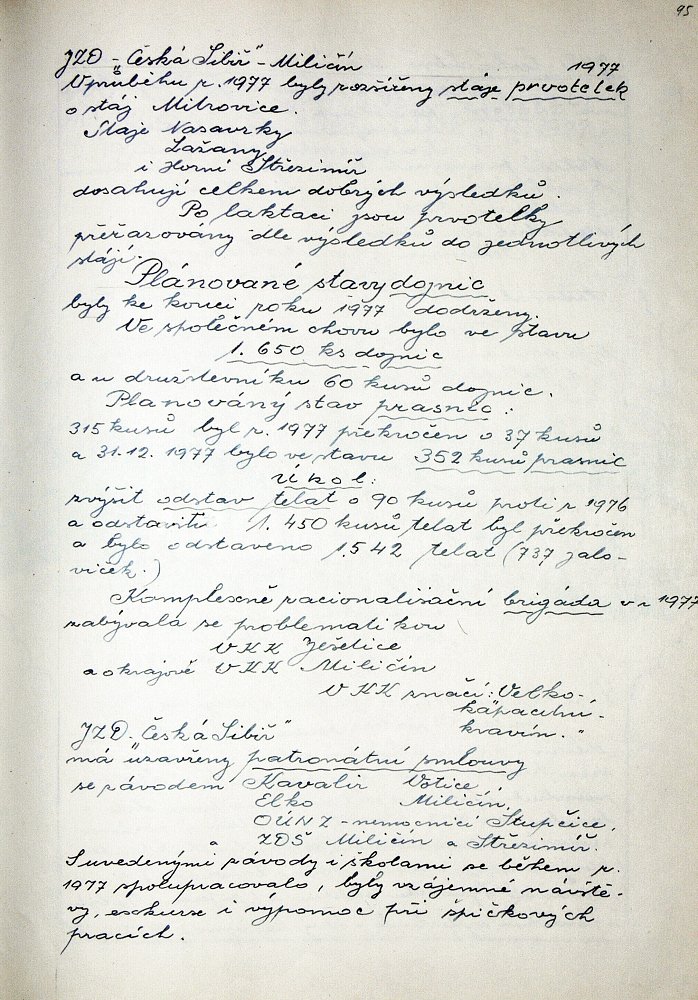 95
JZD - "Česká Sibiř" - Miličín 1977
V průběhu r. 1977 byly rozšířeny stáje prvotelek
o stáj Mitrovice.
Stáje Nasavrky
Lažany
i Horní Střezimíř
dosahují celkem dobrých výsledků.
Po laktaci jsou prvotelky
přeřazovány dle výsledků do jednotlivých
stájí.
Plánované stavy dojnic
byly ke konci roku 1977 dodrženy.
Ve společném chovu bylo ve stavu
1.650 ks dojnic
a u družstevníku 60 kusů dojnic.
Planováný stav prasnic:
315 kusů byl r. 1977 překročen o 37 kusů
a 31.12. 1977 bylo ve stavu 352 kusů prasnic
Úkol:
zvýšit odstav telat o 90 kusů proti r 1976
a odstavit 1.450 kusů telat byl překročen
a bylo odstaveno 1542 telat (737 jalo-
viček.)
Komplexně racionalisační brigáda v r 1977
zabývala se problematikou
VKK Ješetice
a okrajově VKK Miličín
VKK značí: "Velko-
kapacitní
kravín."
JZD. "Česká Sibiř"
má uzavřeny patronátní smlouvy
se závodem Kavalir Votice,
Elko Miličín,
OÚNZ - nemocnicí Stupčice,
a ZDŠ Miličín a Střezimíř.
S uvedenými závody i školami se během r.
1977 spolupracovalo, byly vzájemné návště-
vy, exkurse i výpomoc při špičkových
pracích.